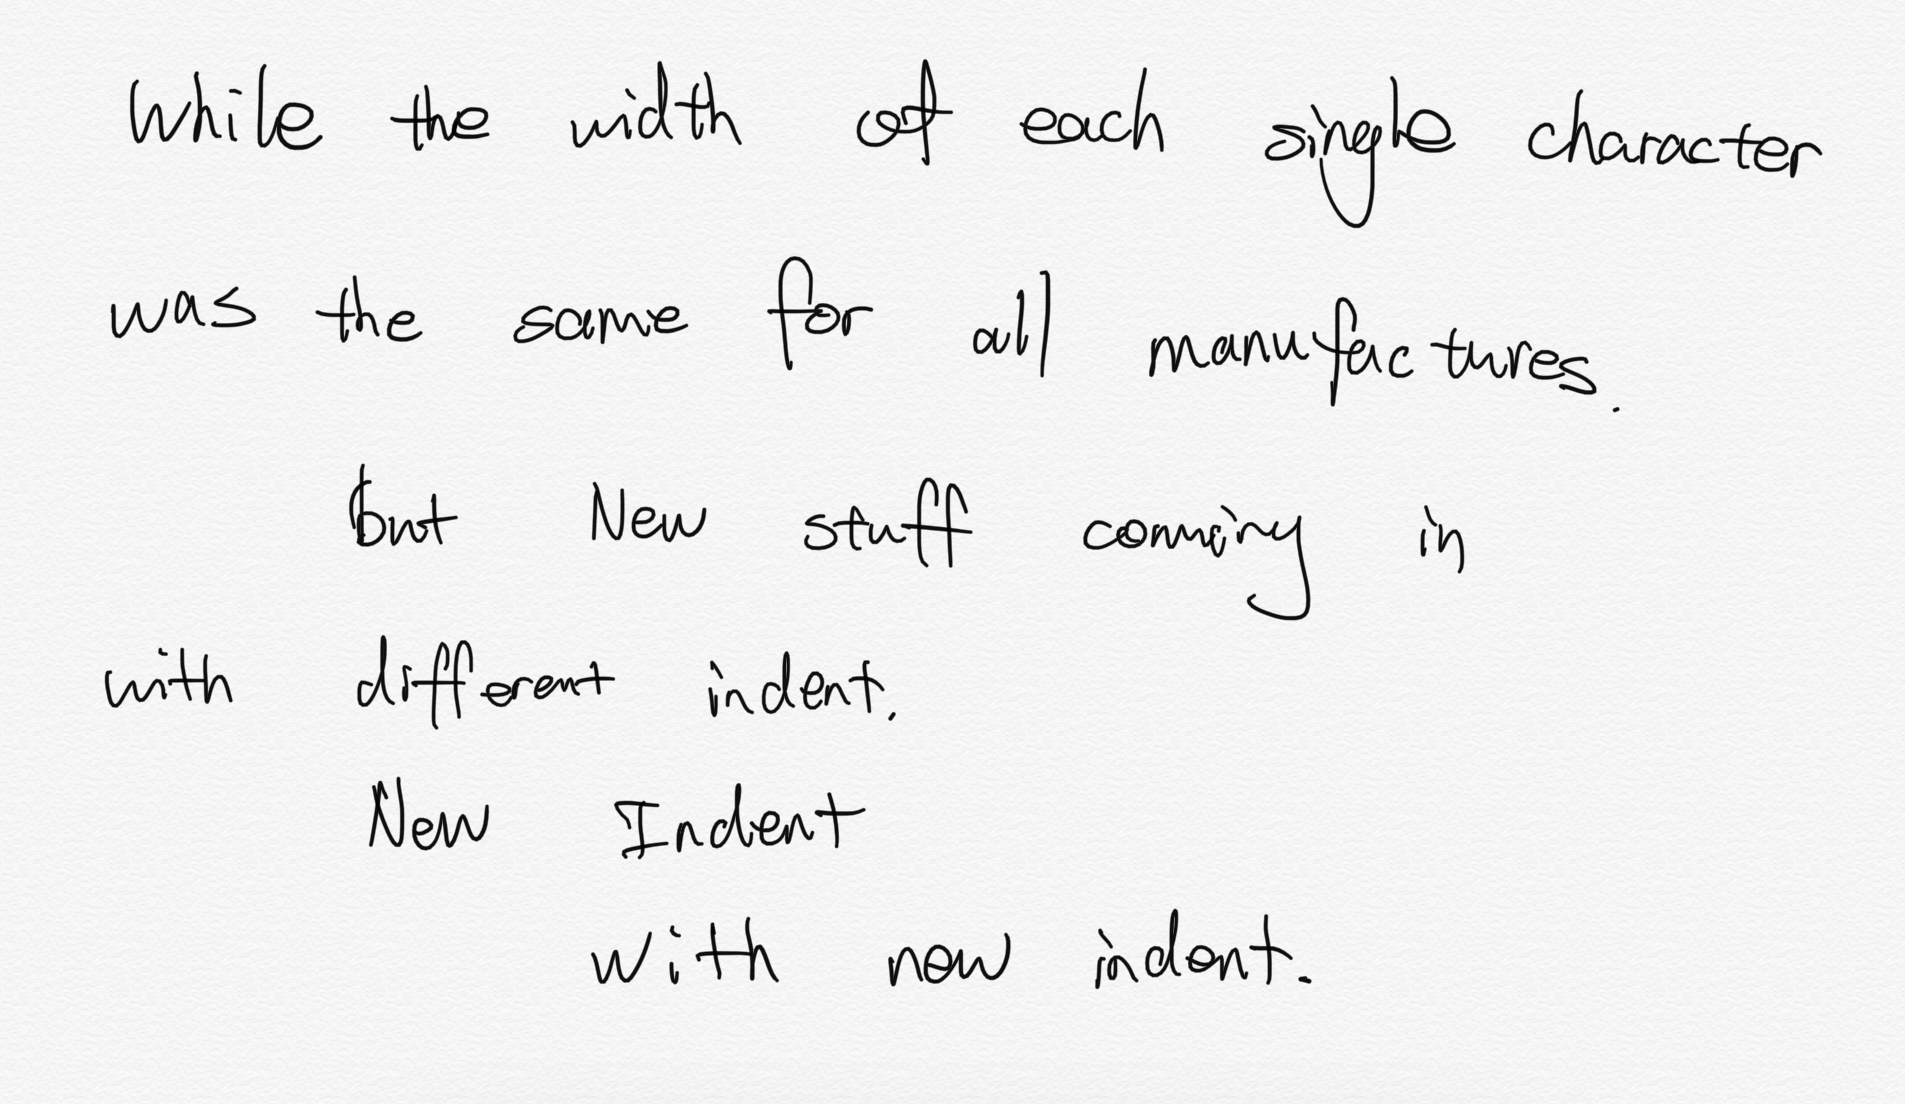 While the width of each single character
was the same for all manufactures.
but New stuff coming in
with different indent.
New Indent
with new indent.